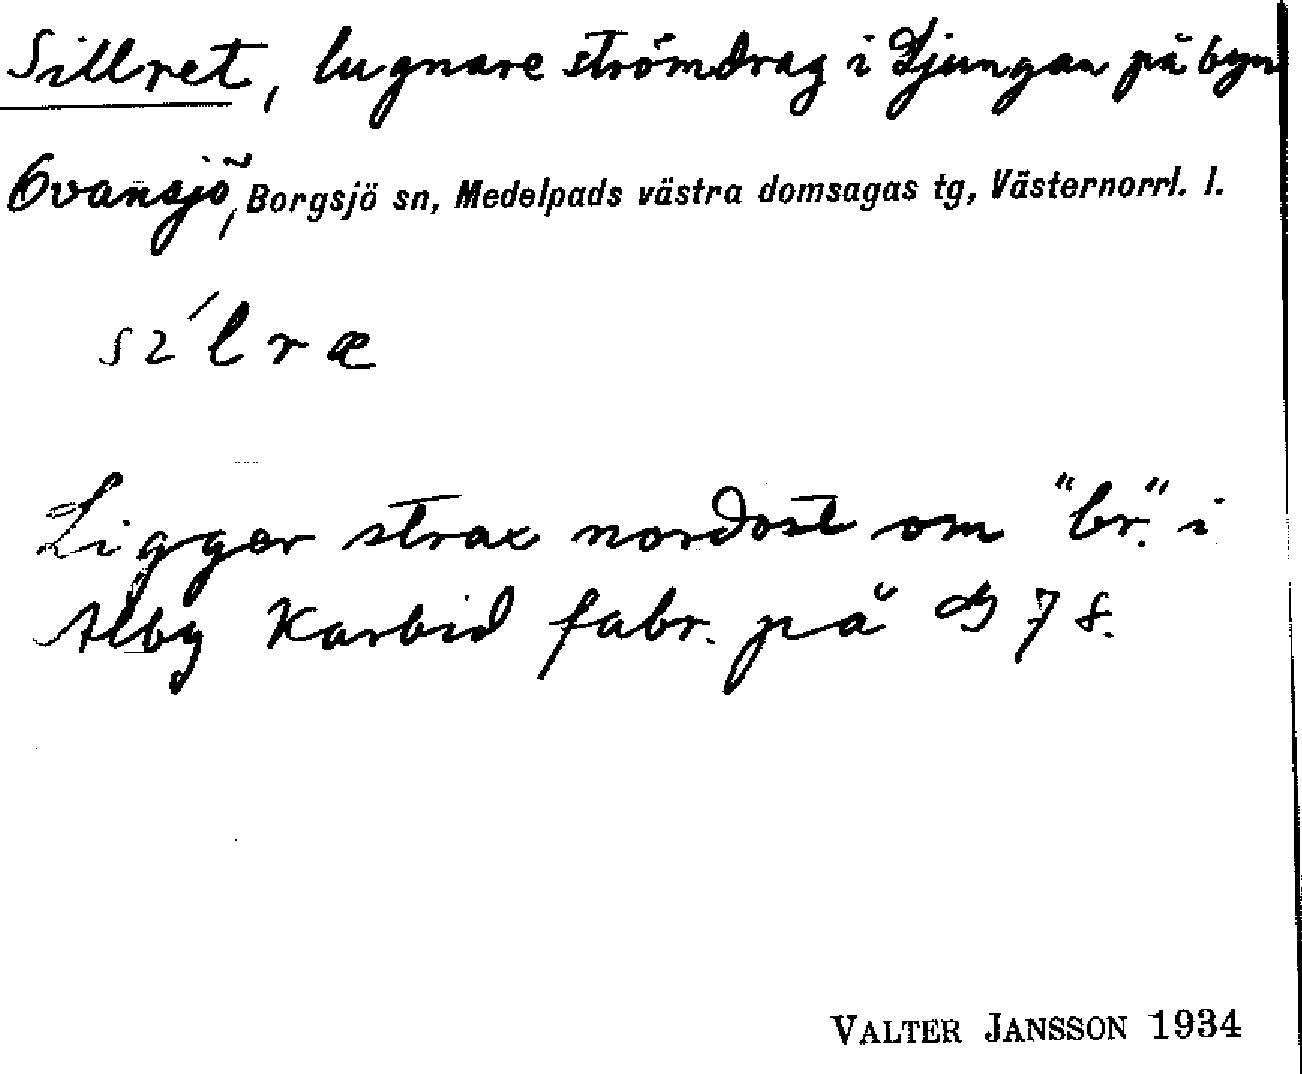 Sillret, lugnare strömdrag i Ljungan på byn
Ovansjö, Borgsjö sn, Medelpads västra domsagas tg, Västernorrl. l.
sı´lræ
Ligger strax nordost om "br." i
Alby Karbid fabr. på 78.
VALTER JANSSON 1934